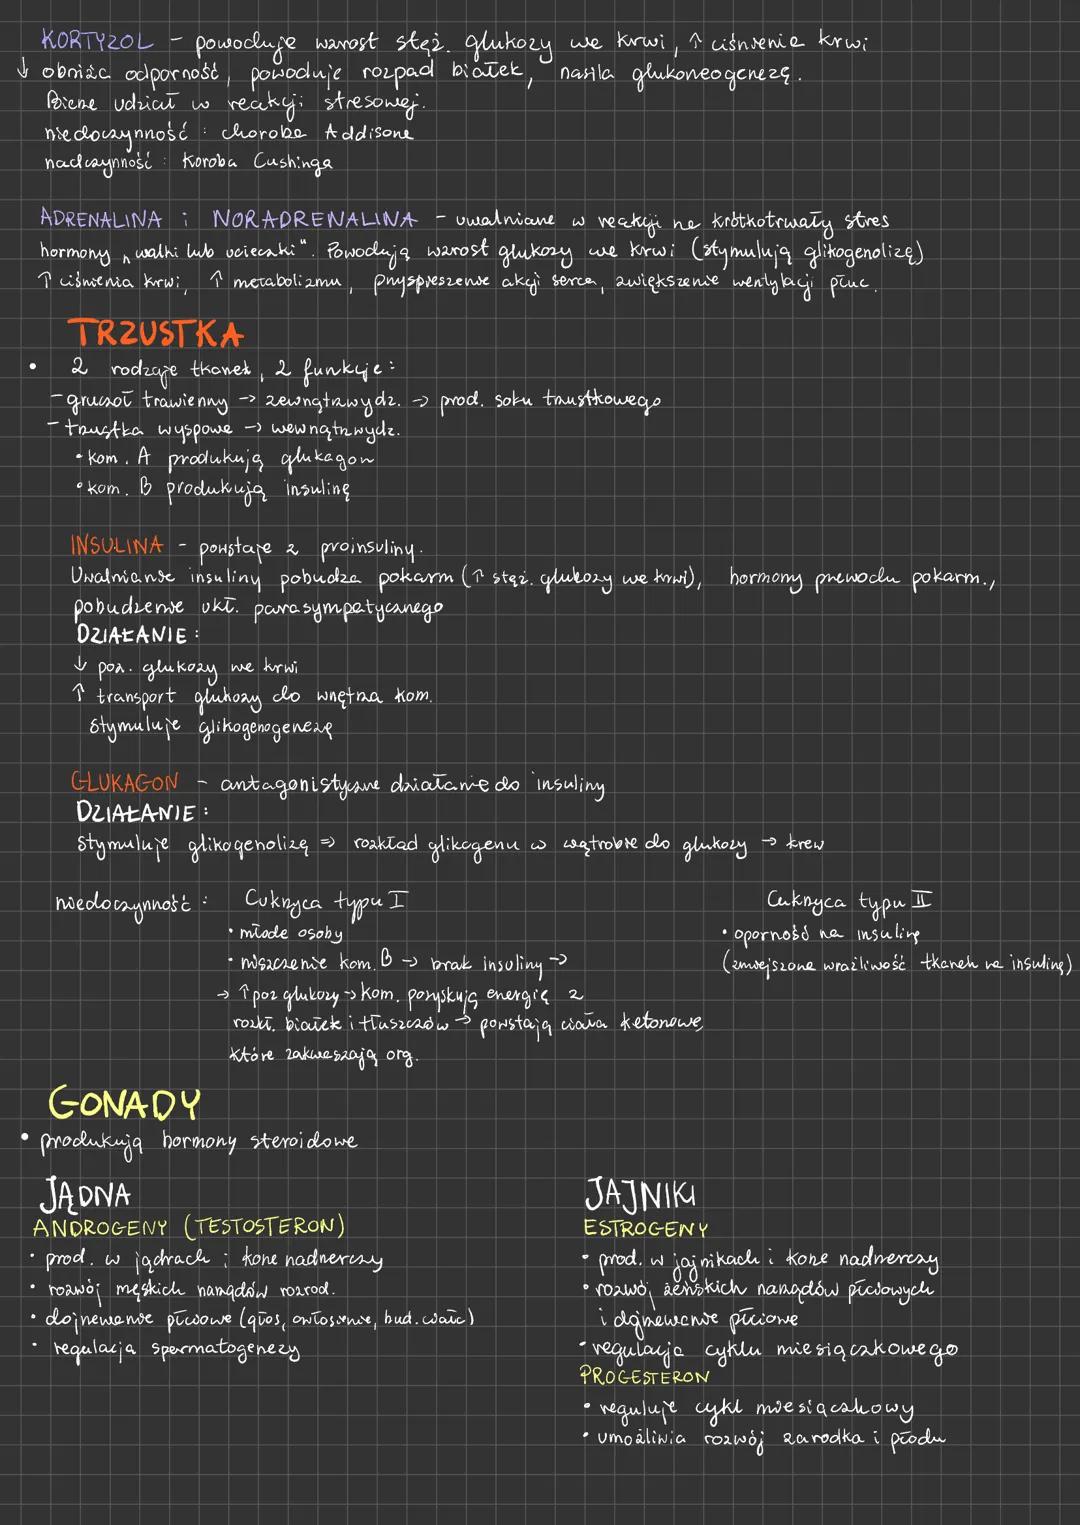 KORTYZOL - powoduje wzrost stęż. glukozy we krwi, ↑ ciśnienie krwi
↓ obniża odporność, powoduje rozpad białek, nasila glukoneogenezę.
Bierze udział w reakcji stresowej.
niedoczynność: choroba Addisona
nadczynność: Koroba Cushinga
ADRENALINA i NORADRENALINA - uwalniane w reakcji na krótkotrwały stres
hormony „walki lub ucieczki". Powodują wzrost glukozy we krwi (stymulują glikogenolizę)
↑ ciśnienia krwi, ↑ metabolizmu, przyspieszenie akcji serca, zwiększenie wentylacji płuc.
TRZUSTKA
• 2 rodzaje tkanek, 2 funkcje:
- gruczoł trawienny → zewnątrzwydz. → prod. soku trzustkowego
- trzustka wyspowa → wewnątrzwydz.
• kom. A produkują glukagon
• kom. B produkują insulinę
INSULINA - powstaje z proinsuliny.
Uwalnianie insuliny pobudza pokarm (↑ stęż. glukozy we krwi), hormony przewodu pokarm.,
pobudzenie ukł. parasympatycznego
DZIAŁANIE:
↓ poz. glukozy we krwi
↑ transport glukozy do wnętrza kom.
stymuluje glikogenogenezę
GLUKAGON - antagonistyczne działanie do insuliny
DZIAŁANIE:
stymuluje glikogenolizę => rozkład glikogenu w wątrobie do glukozy → krew
niedoczynność: Cukrzyca typu I
• młode osoby
• niszczenie kom. B → brak insuliny →
→ ↑ poz glukozy → kom. pozyskują energię z
rozkł. białek i tłuszczów → powstają ciała ketonowe,
które zakwaszają org.
Cukrzyca typu II
• oporność na insulinę
(zmniejszona wrażliwość tkanek na insulinę)
GONADY
• produkują hormony steroidowe
JĄDNA
ANDROGENY (TESTOSTERON)
• prod. w jądrach i korze nadnerczy
• rozwój męskich narządów rozrod.
• dojrzewanie płciowe (głos, owłosienie, bud. ciała)
• regulacja spermatogenezy
JAJNIKI
ESTROGENY
• prod. w jajnikach i korze nadnerczy
• rozwój żeńskich narządów płciowych
i dojrzewanie płciowe
• regulacja cyklu miesiączkowego
PROGESTERON
• reguluje cykl miesiączkowy
• umożliwia rozwój zarodka i płodu